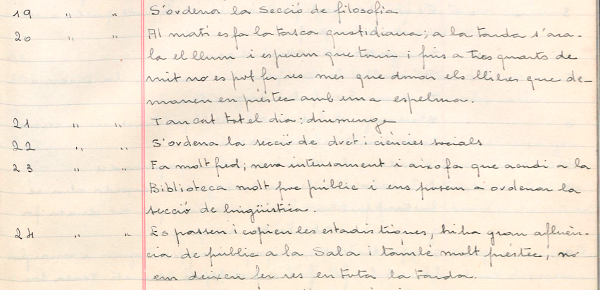 19 " " S'ordena la secció de filosofia
20 " " Al matí es fa la tasca quotidiana; a la tarda s'ava-
la el llum i esperem que torni i fins a tres quarts de
nuit no es pot fer res mes que donar els llibres que de-
manen en préstec amb una espelma.
21 " " Tancat tot el dia: diumenge
22 " " S'ordena la secció de dret i ciències socials
23 " " Fa molt fred; neva intensament i aixo fa que acudi a la
Biblioteca molt poc públic i ens posem a ordenar la
secció de lingüística.
24 " " Es passen i copien les estadístiques, hi ha gran afluèn-
cia de públic a la Sala i també molt préstec, no
em deixen fer res en tota la tarda.